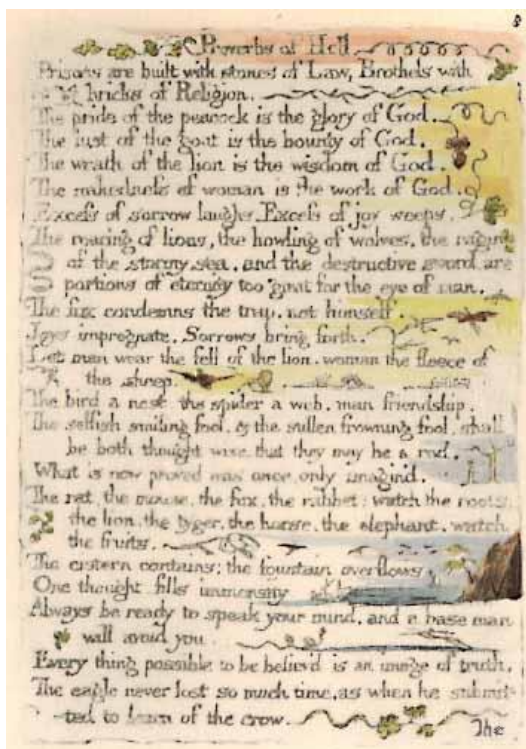 8
Proverbs of Hell
Prisons are built with stones of Law, Brothels with
bricks of Religion.
The pride of the peacock is the glory of God.
The lust of the goat is the bounty of God.
The wrath of the lion is the wisdom of God.
The nakedness of woman is the work of God.
Excess of sorrow laughs. Excess of joy weeps.
The roaring of lions, the howling of wolves, the raging
of the stormy sea, and the destructive sword, are
portions of eternity too great for the eye of man.
The fox condemns the trap, not himself.
Joys impregnate. Sorrows bring forth.
Let man wear the fell of the lion. woman the fleece of
the sheep.
The bird a nest, the spider a web, man friendship.
The selfish smiling fool, & the sullen frowning fool, shall
be both thought wise, that they may be a rod.
What is now proved was once, only imagin'd.
The rat, the mouse, the fox, the rabbet: watch the roots,
the lion, the tyger, the horse, the elephant, watch
the fruits.
The cistern contains: the fountain overflows
One thought fills immensity
Always be ready to speak your mind, and a base man
will avoid you.
Every thing possible to be believ'd is an image of truth.
The eagle never lost so much time, as when he submit-
ted to learn of the crow.
The